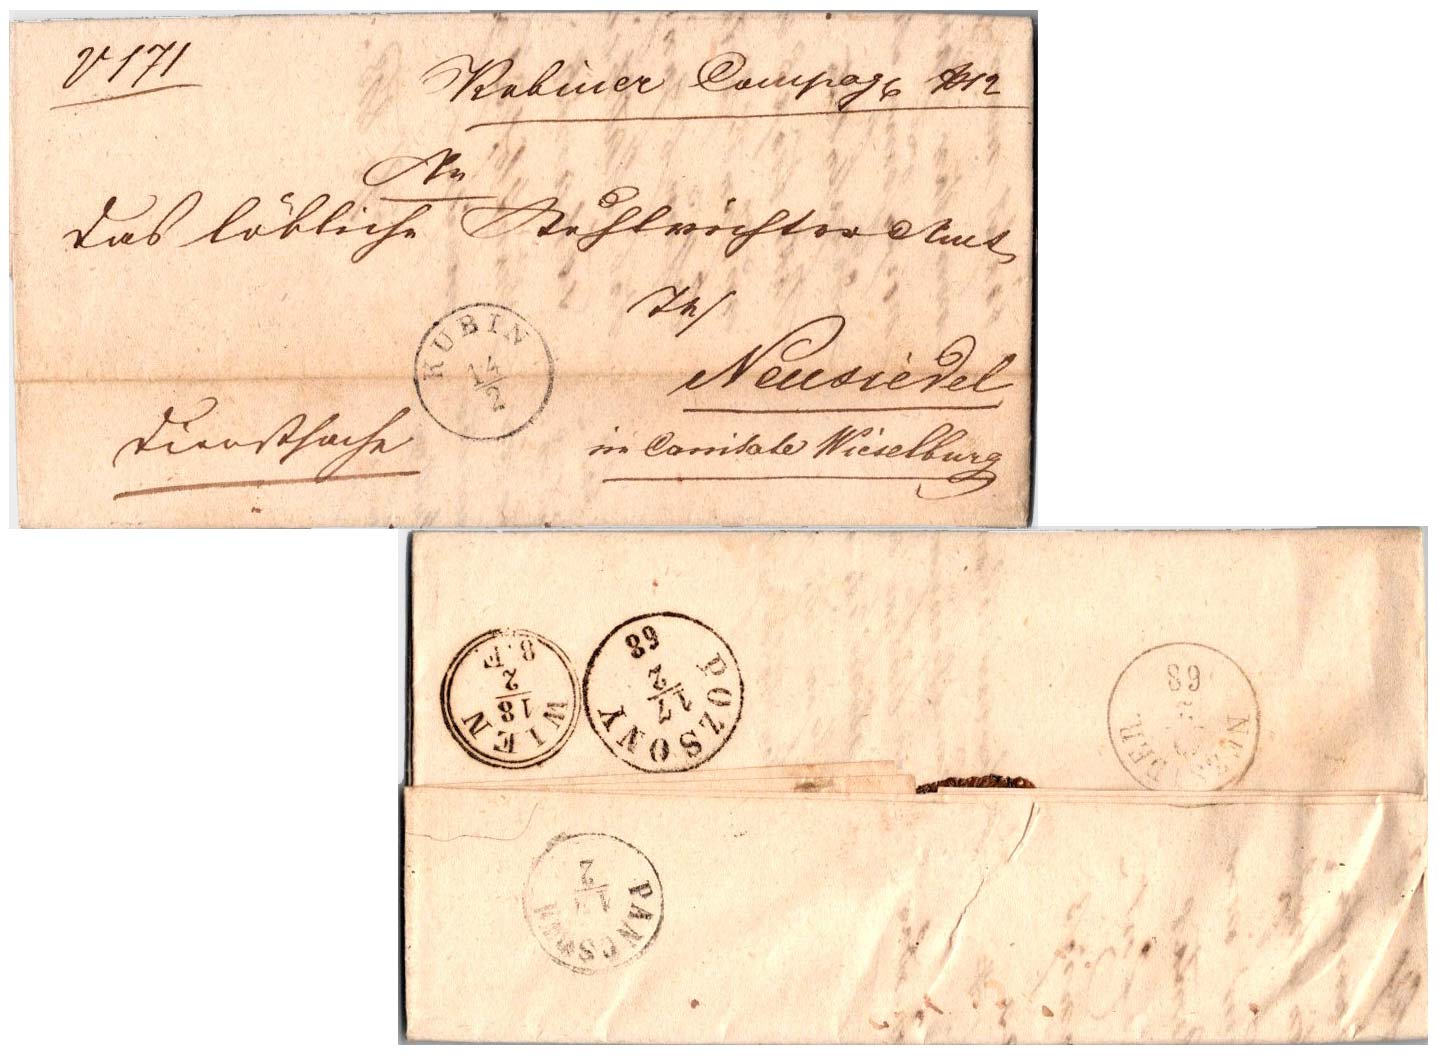 V 171
Kubiner Compag № 12
An
Das löbliche Stuhlrichter Amt
in
Neusiedel
im Comitate Wieselburg
Dienstsache
KUBIN
14/2
WIEN
18/2
8. F.
POZSONY
17/2
68
68
PANCSOVA
2